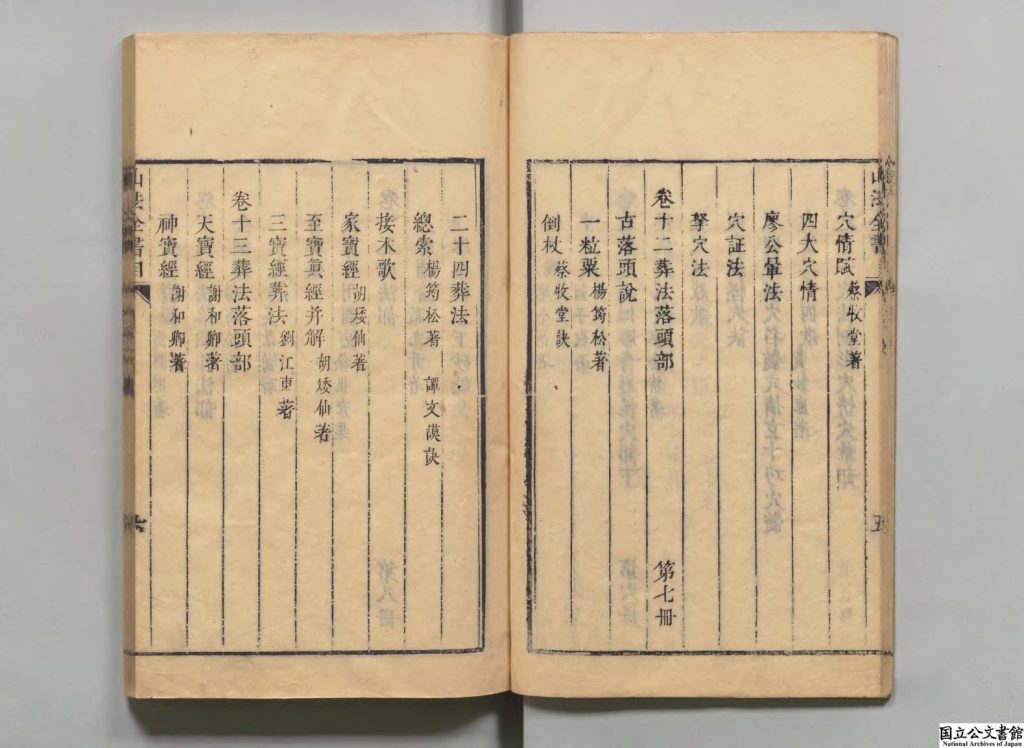 穴情賦 蔡牧堂著
四大穴情
廖公暈法
穴証法
拏穴法
卷十二葬法落頭部 第七冊
古落頭說
一粒粟 楊筠松著
倒杖 蔡牧堂訣
二十四葬法
總索 楊筠松著 譚文謨訣
接木歌
家寶經 胡矮仙著
至寶眞經并解 胡矮仙著
三寶經葬法 劉江東著
卷十三葬法落頭部
天寶經 謝和卿著
神寶經 謝和卿著
山法全書目
五
国立公文書館
National Archives of Japan